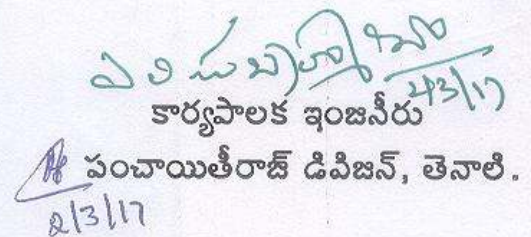 2/3/17
కార్యపాలక ఇంజనీరు
పంచాయితీరాజ్ డివిజన్, తెనాలి.
2/3/17